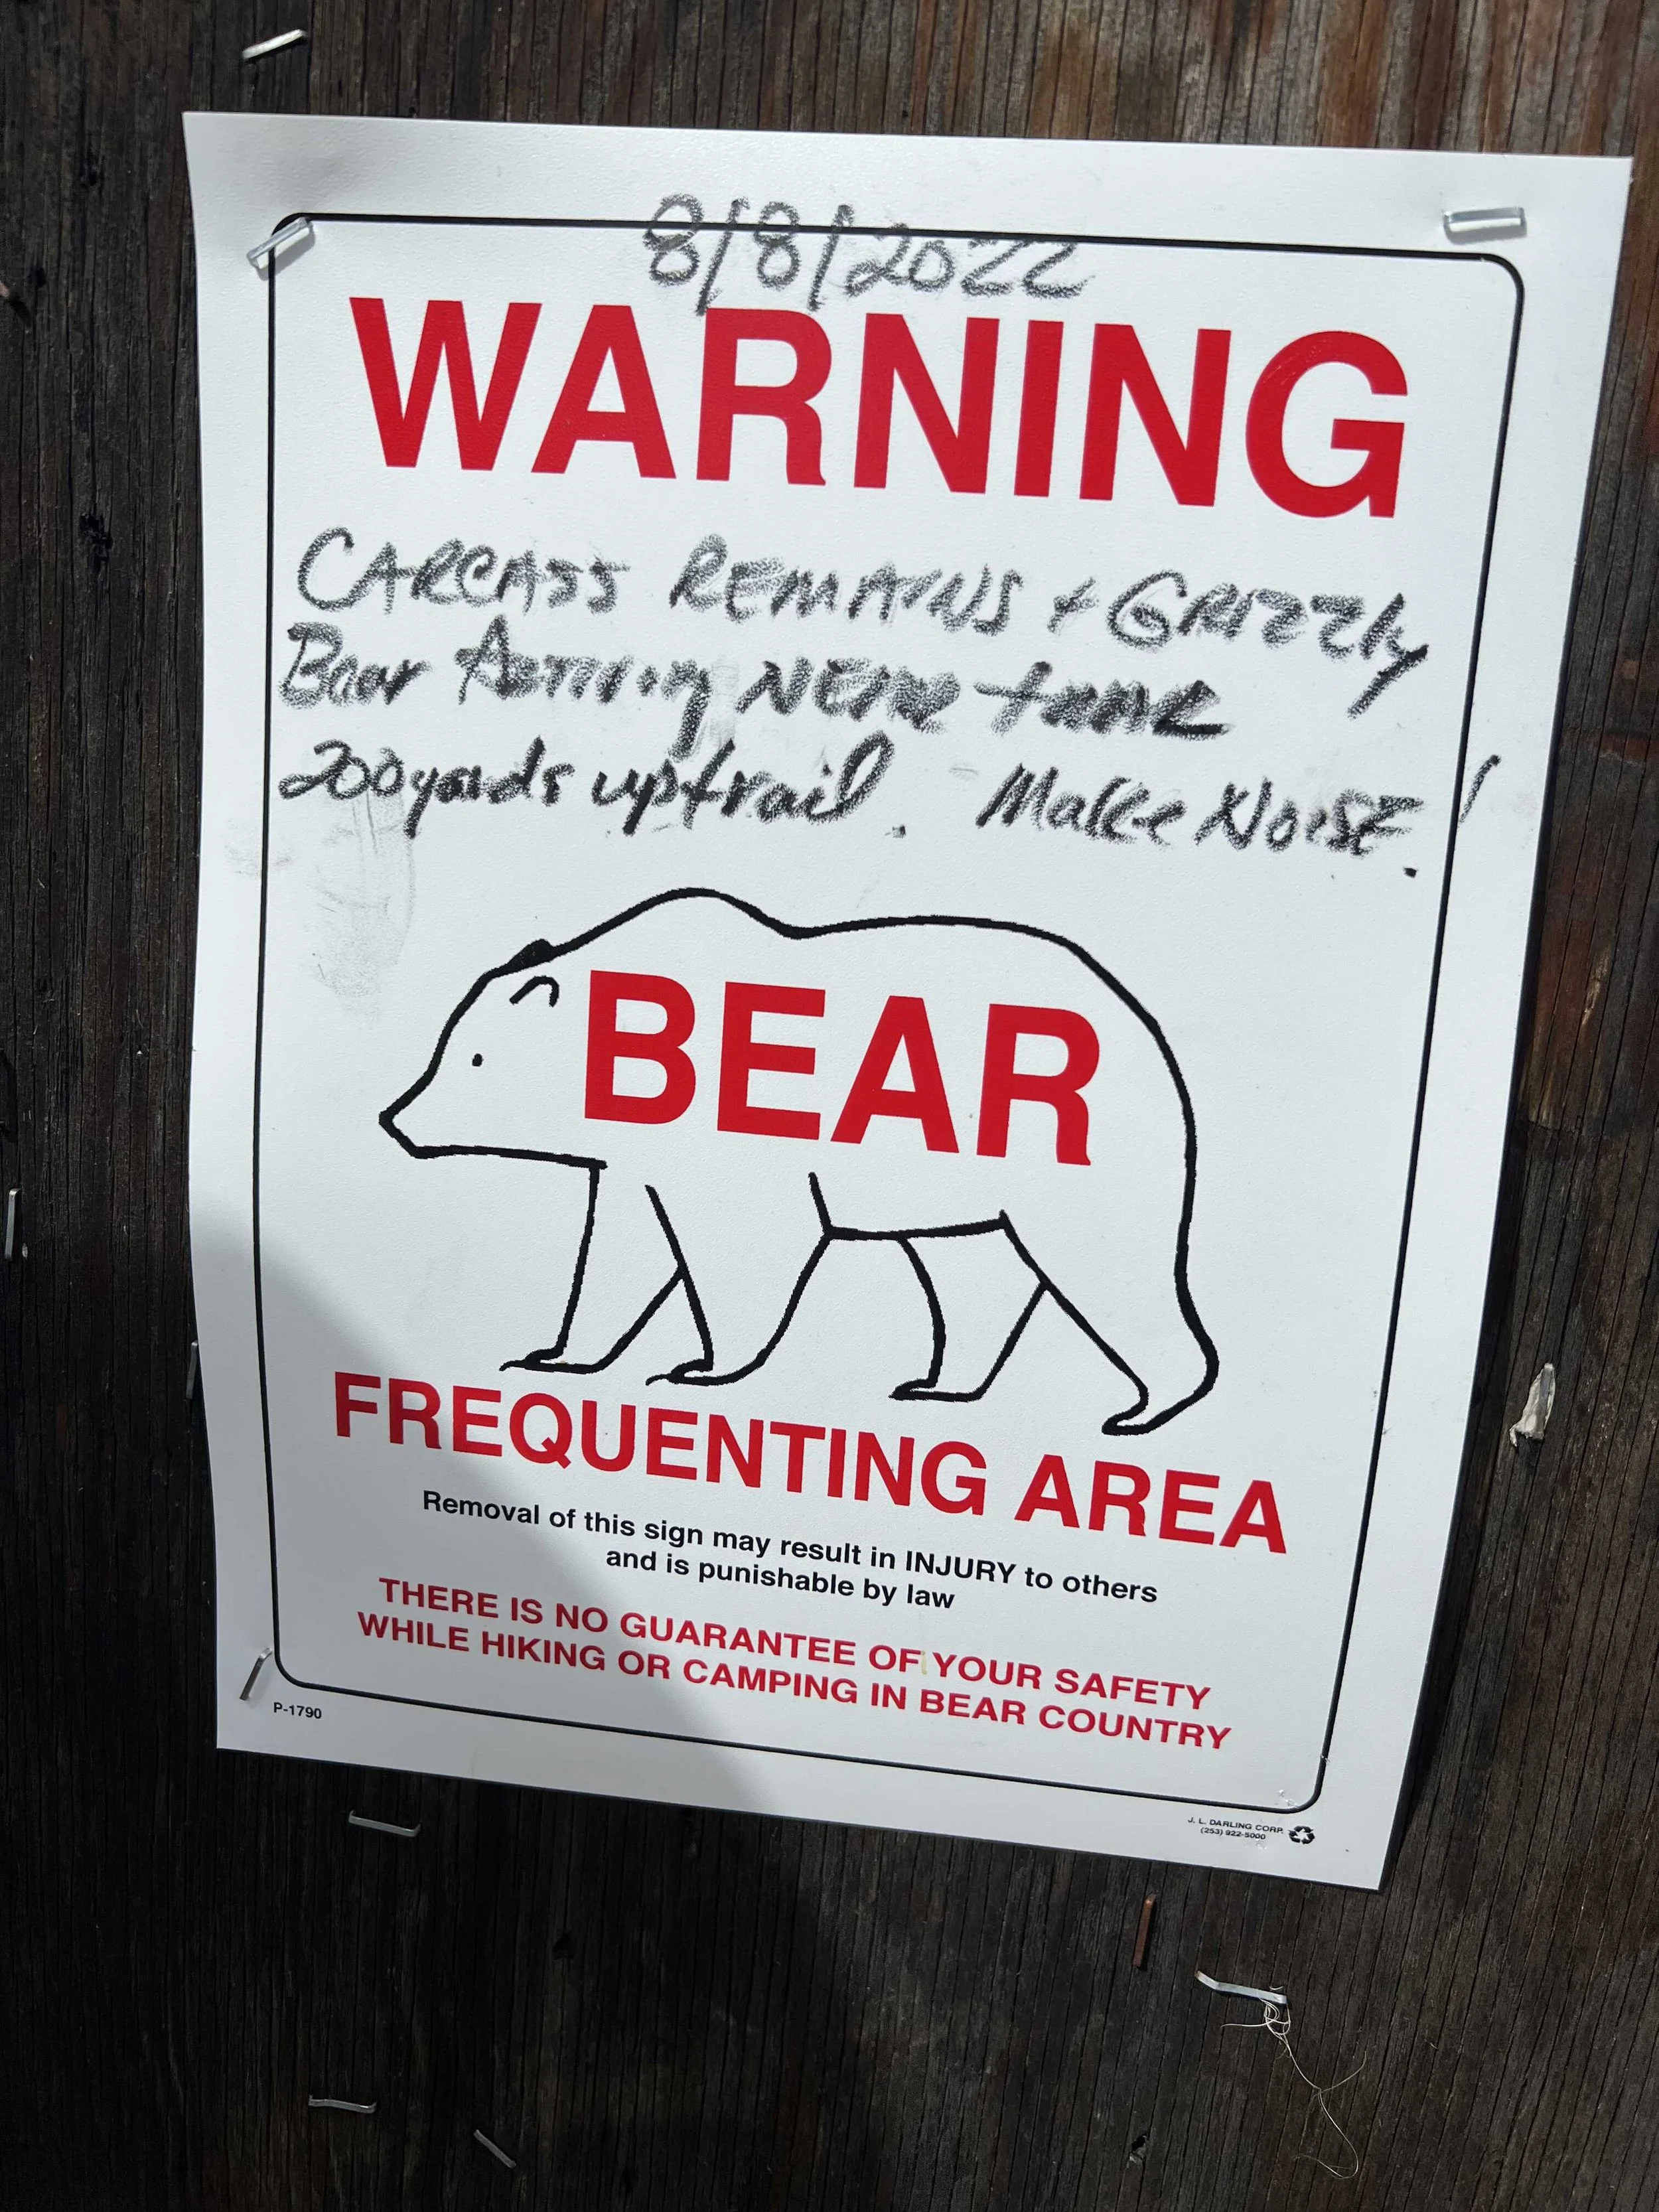 8/8/2022
WARNING
CARCASS REMAINS + GRIZZly
Bear Activity NEAR
200 yards up trail. Make NOISE!
BEAR
FREQUENTING AREA
Removal of this sign may result in INJURY to others
and is punishable by law
THERE IS NO GUARANTEE OF YOUR SAFETY
WHILE HIKING OR CAMPING IN BEAR COUNTRY
P-1790
J. L. DARLING CORP.
(253) 922-5000